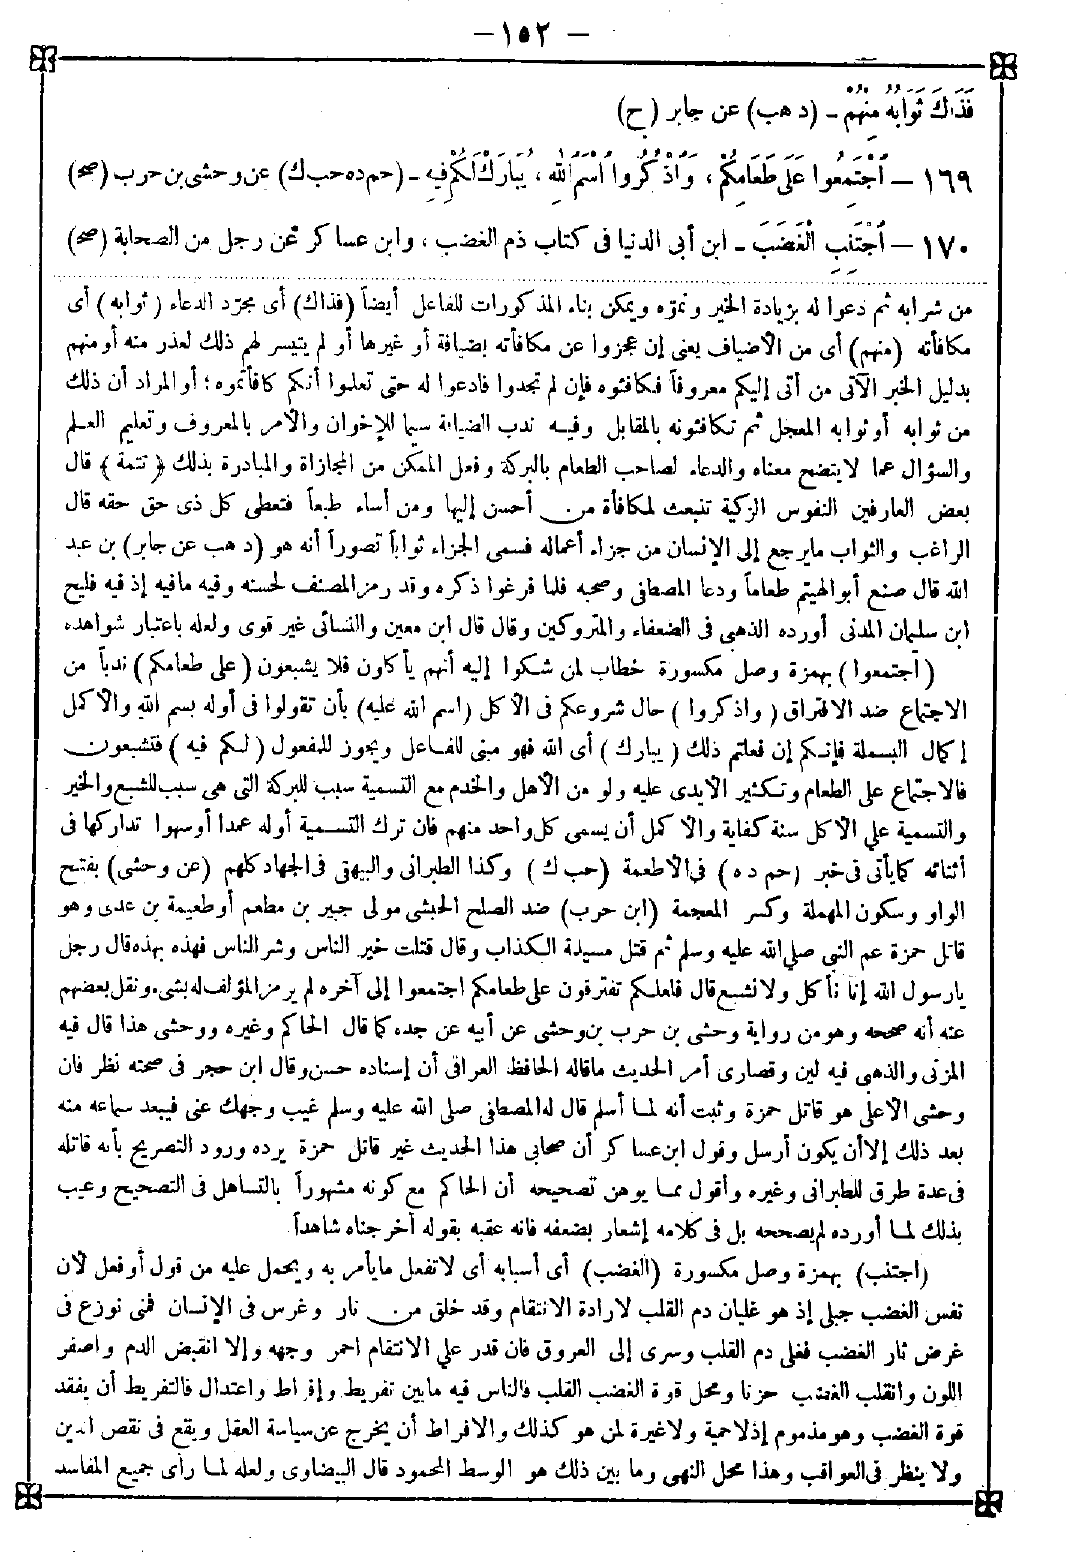 – ١٥٢ –
فَذَاكَ ثَوَابُهُ مِنْهُمْ – (د هب) عن جابر (ح)
١٦٩ – اجْتَمِعُوا عَلَى طَعَامِكُمْ، وَاذْكُرُوا اسْمَ اللهِ، يُبَارَكْ لَكُمْ فِيهِ – (حم ده حب ك) عن وحشى بن حرب (صح)
١٧٠ – اجْتَنِبِ الْغَضَبَ – ابن أبى الدنيا فى كتاب ذم الغضب، وابن عساكر عن رجل من الصحابة (صح)
من شرابه ثم دعوا له بزيادة الخير ونموّه ويمكن بناء المذكورات للفاعل أيضاً (فذاك) أى مجرّد الدعاء (ثوابه) أى
مكافأته (منهم) أى من الأضياف يعنى إن عجزوا عن مكافأته بضيافة أو غيرها أو لم يتيسر لهم ذلك لعذر منه أو منهم
بدليل الخبر الآتى من أتى إليكم معروفاً فكافئوه فإن لم تجدوا فادعوا له حتى تعلموا أنكم كافأتموه؛ أو المراد أن ذلك
من ثوابه أو ثوابه المعجل ثم تكافئونه بالمقابل وفيه ندب الضيافة سيما للإخوان والأمر بالمعروف وتعليم العلم
والسؤال عما لا يتضح معناه والدعاء لصاحب الطعام بالبركة وفعل الممكن من المجازاة والمبادرة بذلك (تتمة) قال
بعض العارفين النفوس الزكية تنبعث لمكافأة من أحسن إليها ومن أساء طبعاً فتعطى كل ذى حق حقه قال
الراغب والثواب مايرجع إلى الإنسان من جزاء أعماله فسمى الجزاء ثواباً تصوراً أنه هو (د هب عن جابر) بن عبد
الله قال صنع أبو الهيثم طعاماً ودعا المصطفى وصحبه فلما فرغوا ذكره وقد رمز المصنف لحسنه وفيه مافيه إذ فيه فليح
ابن سليمان المدنى أورده الذهبى فى الضعفاء والمتروكين وقال قال ابن معين والنسائى غير قوى ولعله باعتبار شواهده
(اجتمعوا) بهمزة وصل مكسورة خطاب لمن شكوا إليه أنهم يأكلون فلا يشبعون (على طعامكم) ندباً من
الاجتماع ضد الافتراق (واذكروا) حال شروعكم فى الأكل (اسم الله عليه) بأن تقولوا فى أوله بسم الله والأكمل
إكمال البسملة فإنكم إن فعلتم ذلك (يبارك) أى الله فهو مبنى للفاعل ويجوز للمفعول (لكم فيه) فتشبعون
فالاجتماع على الطعام وتكثير الأيدى عليه ولو من الأهل والخدم مع التسمية سبب للبركة التى هى سبب للشبع والخير
والتسمية على الأكل سنة كفاية والأكمل أن يسمى كل واحد منهم فان ترك التسمية أوله عمدا أو سهوا تداركها فى
أثنائه كما يأتى فى خبر (حم د ه) فى الأطعمة (حب ك) وكذا الطبرانى والبيهقى فى الجهاد كلهم (عن وحشى) بفتح
الواو وسكون المهملة وكسر المعجمة (ابن حرب) ضد الصلح الحبشى مولى جبير بن مطعم أو طعيمة بن عدى وهو
قاتل حمزة عم النبى صلى الله عليه وسلم ثم قتل مسيلمة الكذاب وقال قتلت خير الناس وشر الناس فهذه بهذه قال رجل
يارسول الله إنا نأكل ولا نشبع قال فلعلكم تفترقون على طعامكم اجتمعوا إلى آخره لم يرمز المؤلف له بشىء ونقل بعضهم
عنه أنه صححه وهو من رواية وحشى بن حرب بن وحشى عن أبيه عن جده كما قال الحاكم وغيره ووحشى هذا قال فيه
المزنى والذهبى فيه لين وقصارى أمر الحديث ماقاله الحافظ العراقى أن إسناده حسن وقال ابن حجر فى صحته نظر فان
وحشى الأعلى هو قاتل حمزة وثبت أنه لما أسلم قال له المصطفى صلى الله عليه وسلم غيب وجهك عنى فيبعد سماعه منه
بعد ذلك إلا أن يكون أرسل وقول ابن عساكر أن صحابى هذا الحديث غير قاتل حمزة يرده ورود التصريح بأنه قاتله
فى عدة طرق للطبرانى وغيره وأقول مما يوهن تصحيحه أن الحاكم مع كونه مشهوراً بالتساهل فى التصحيح وعيب
بذلك لما أورده لم يصححه بل فى كلامه إشعار بضعفه فانه عقبه بقوله أخرجناه شاهداً
(اجتنب) بهمزة وصل مكسورة (الغضب) أى أسبابه أى لا تفعل مايأمر به ويحمل عليه من قول أو فعل لأن
نفس الغضب جبلى إذ هو غليان دم القلب لارادة الانتقام وقد خلق من نار وغرس فى الإنسان فمتى نوزع فى
غرض ثار الغضب فغلى دم القلب وسرى إلى العروق فان قدر على الانتقام احمر وجهه وإلا انقبض الدم واصفر
اللون وانقلب الغضب حزنا ومحل قوة الغضب القلب فالناس فيه مابين تفريط وإفراط واعتدال فالتفريط أن يفقد
قوة الغضب وهو مذموم إذ لا حمية ولا غيرة لمن هو كذلك والافراط أن يخرج عن سياسة العقل ويقع فى نقص الدين
ولا ينظر فى العواقب وهذا محل النهى وما بين ذلك هو الوسط المحمود قال البيضاوى ولعله لما رأى جميع المفاسد